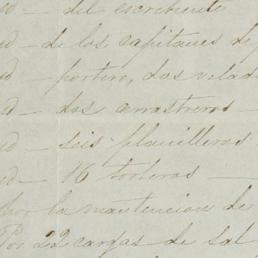 id — del escribiente
id — de los capitanes de
id — portero, dos velad
id — dos arrastreros —
id — seis planilleros
id — 16 torteros —
por la mantencion de
Por 22 cargas de sal